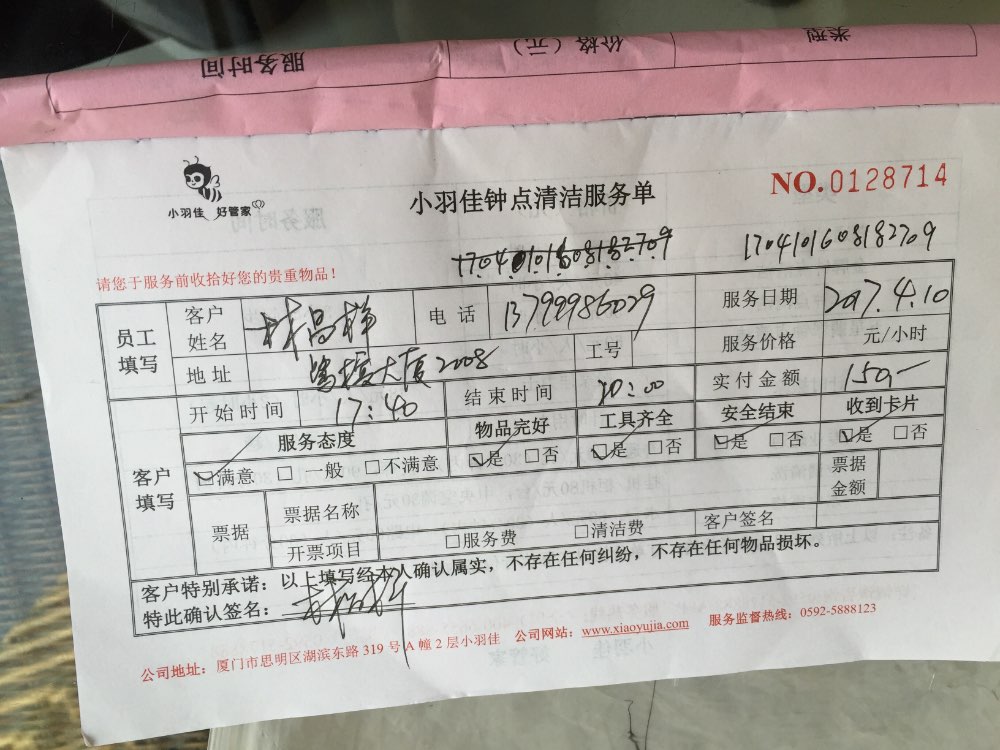 服务时间 价格（元） 类型
小羽佳 好管家
小羽佳钟点清洁服务单
NO.0128714
1704101608182709
1704101608182709
请您于服务前收拾好您的贵重物品！
员工填写 客户姓名 电话 13799986029 服务日期 2017.4.10
地址 大厦2008 工号 服务价格 元/小时
客户填写 开始时间 17:40 结束时间 20:00 实付金额 150,-
服务态度 物品完好 工具齐全 安全结束 收到卡片
☑满意 □一般 □不满意 ☑是 □否 ☑是 □否 ☑是 □否 ☑是 □否
票据 票据名称 票据金额
开票项目 □服务费 □清洁费 客户签名
客户特别承诺：以上填写经本人确认属实，不存在任何纠纷，不存在任何物品损坏。
特此确认签名：
公司地址：厦门市思明区湖滨东路 319 号 A 幢 2 层小羽佳 公司网站：www.xiaoyujia.com 服务监督热线：0592-5888123